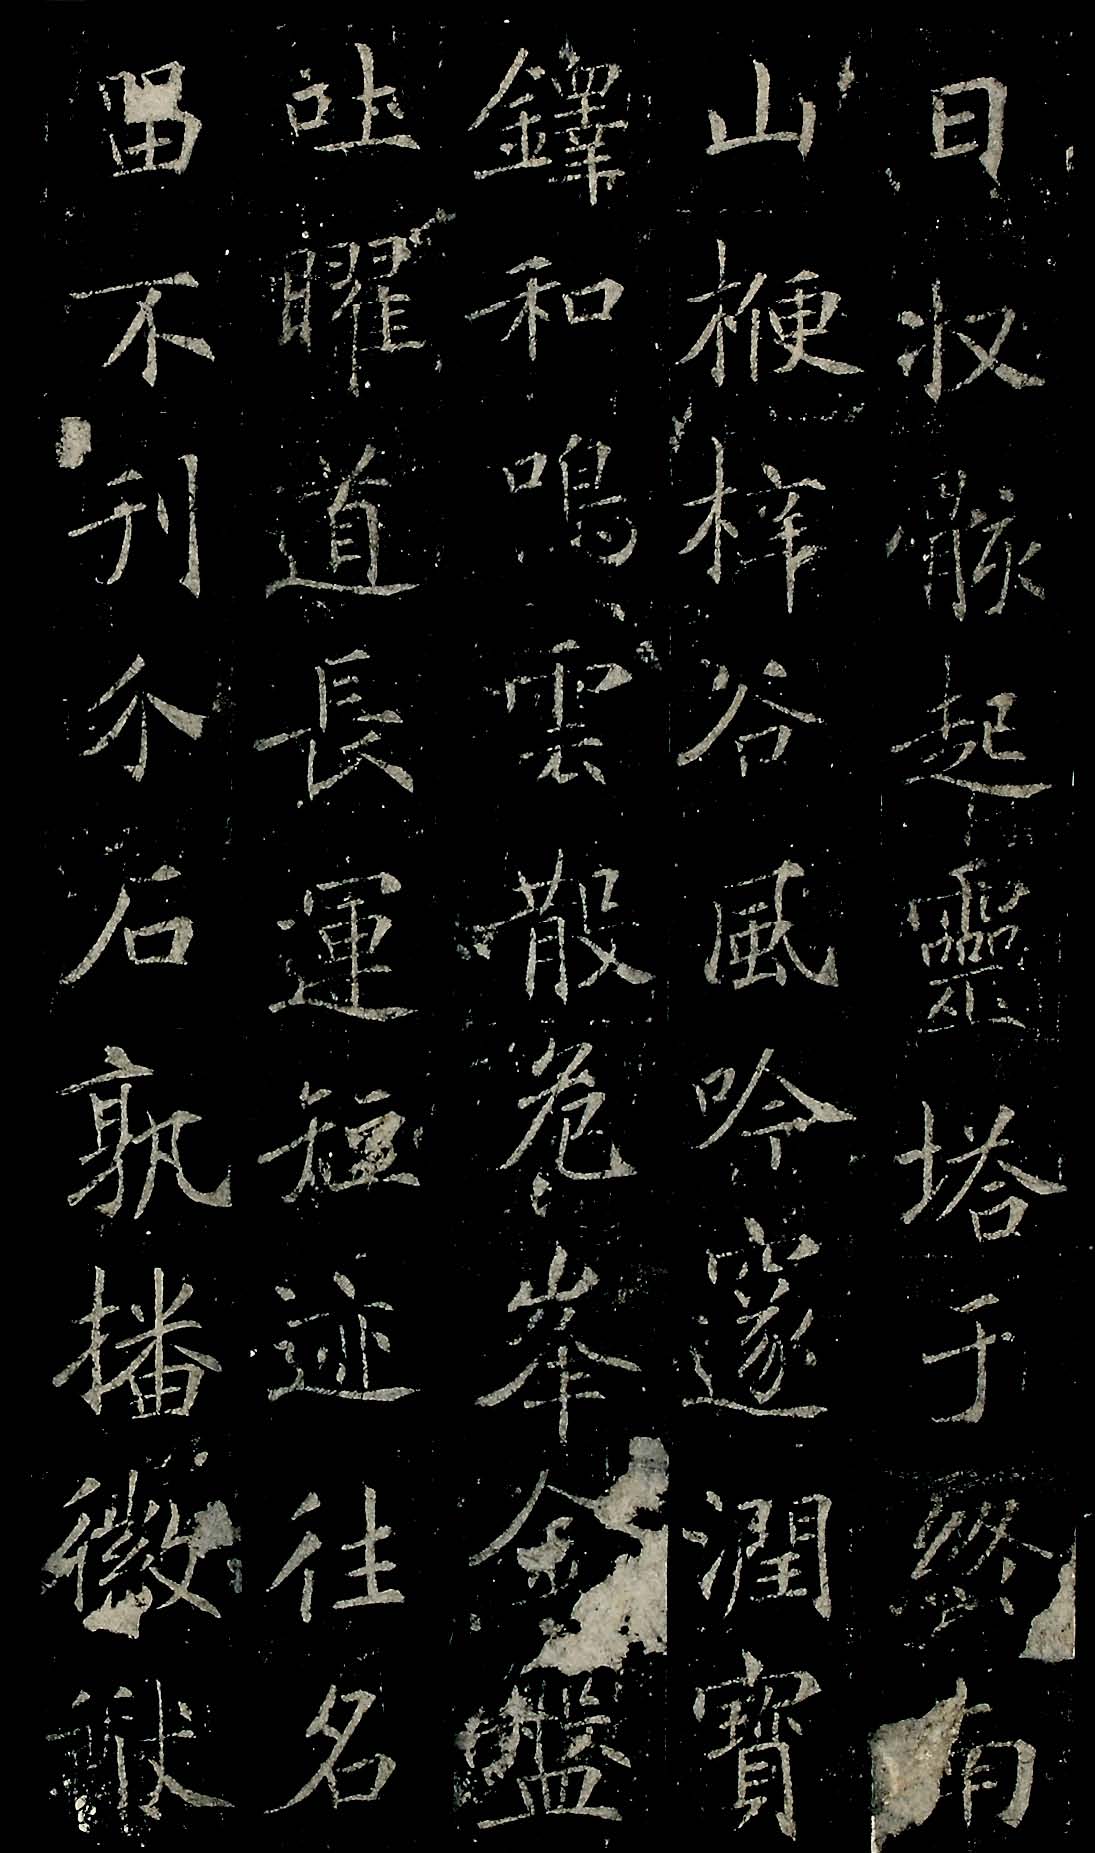 日收骸起靈塔于終南
山楩梓谷風吟邃潤寶
鐸和鳴雲散危峯金盤
吐曜道長運短迹往名
留不刊介石孰播徽猷